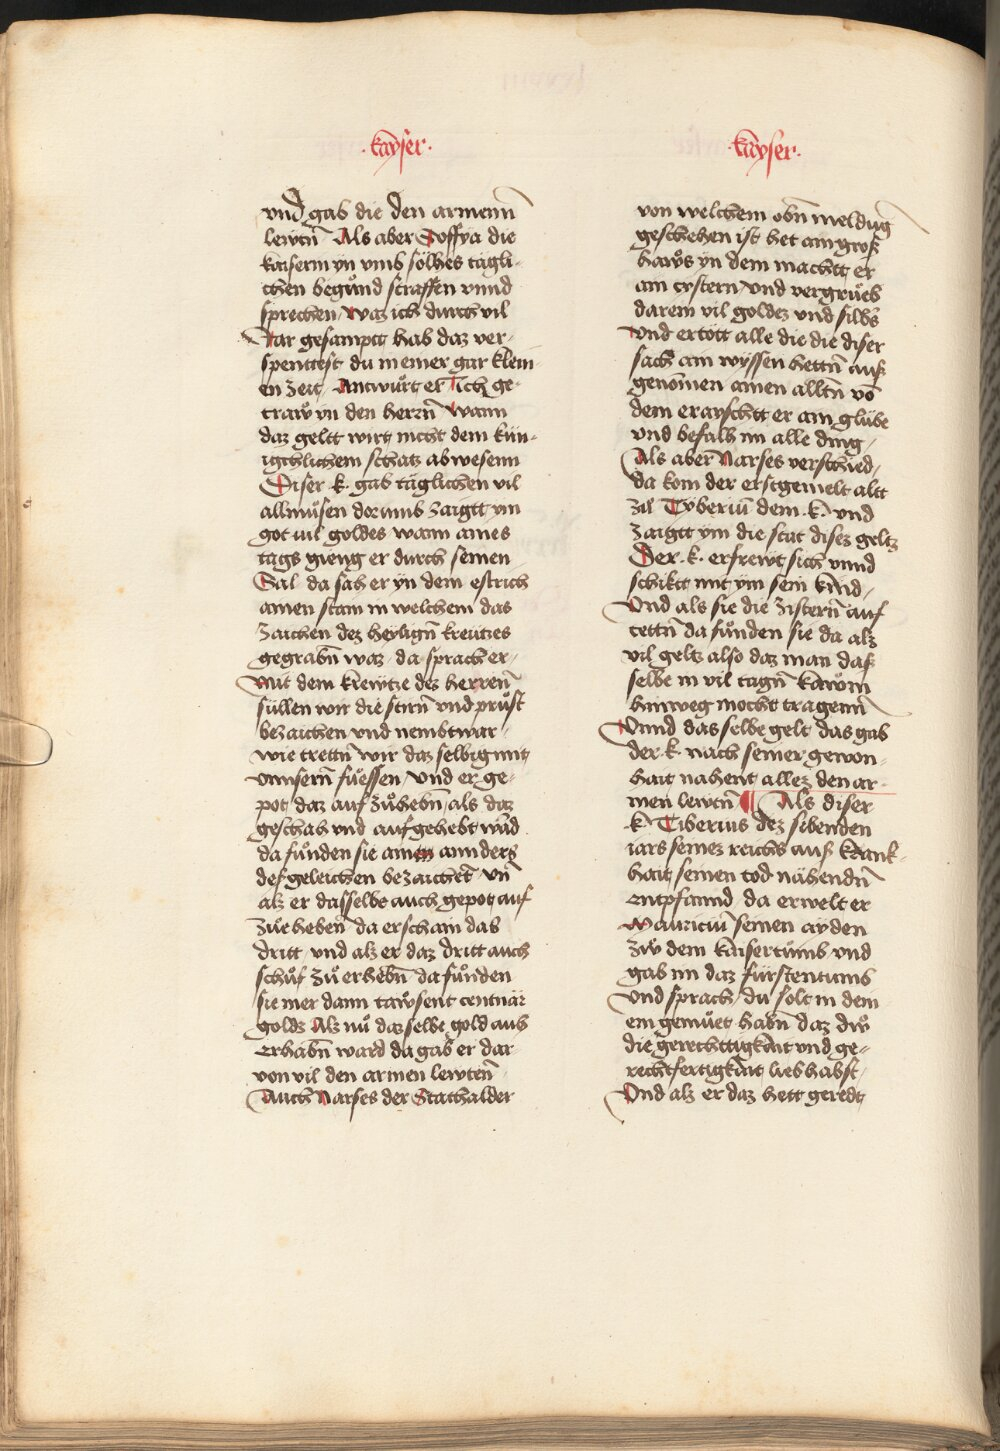 ·kayser·
vnd gab die den armenn
lewtn̄ Als aber Soffya die
kaiserin yn vmb sölhes tägli-
ichen begund straffen vnnd
sprechen / waz ich durch vil
Jar gesamptt hab daz ver-
spenttest du in einer gar klein-
en zeit / Antwůrt er Ich ge-
traẘ yn den herrn̄ wann
daz geltt wirtt nicht dem kün-
igchlichem schatz abwesenn
Diser ·k· gab täglichen vil
allmůsen dorumb zaigtt ym
got vil goldes wann aines
tags gieng er durch seinen
Sal da sah er yn dem estrich
ainen stain in welchem das
zaichen dez heylign̄ kreutzes
gegrabn̄ waz / da sprach er /
mit dem krewtze dez herrenn̄
süllen wir die stirn̄ vnd průst
bezaichen vnd nembt war /
wie trettn̄ wir daz selbig mit
vnnsern̄ fůessen vnd er ge-
pot daz auf zů hebn̄ / als daz
geschah vnd aufgehebt ward
da fůnden sie ainen annders
desgeleichen bezaichet vn̄
alz er dasselbe auch gepot auf
zůe heben̄ da erschain das
dritt / vnd alz er daz dritt auch
schůf zů erhebn̄ da fůnden
sie mer dann taẘsent centnär
golds Alz nů daz selbe gold aus
erhabn̄ ward da gab er dar-
von vil den armen lewten̄
Auch Narses der Stathalder
·kayser·
von welchem obn̄ meldug
geschehen ist het ain gros
haẘs yn dem machtt er
ain cistern vnd vergrůeb
darein vil goldez vnd silbs̄
Vnd ertott alle die die diser
sach ain wyssen hettn̄ aus
genomen ainen alltn̄ vō
dem erayschtt er ain glübe
vnd befalh im alle ding /
Als aber Narses verschied /
da kom der erstgemelt altt
zů Tyberiū dem ·k· vnd
zaigtt ym die stat disez geltz
Der ·k· erfrewt sich vnnd
schiktt mit ym sein kind /
Vnd als sie die zistern̄ auf
tettn̄ da fůnden sie da alz
vil geltz also daz man das
selbe in vil tagn̄ kaẘm
hinweg mocht tragenn̄
Vnnd das selbe gelt das gab
der ·k· nach seiner gewon-
hait nahent allez den ar-
men lewtn̄ ¶ Als diser
·k· Tiberius dez sibenden
iars seinez reichs aus krank-
hait seinen tod nähendn̄
entpfannd da erwelt er
Mauriciū seinen ayden
zů dem kaisertůmb vnd
gab im daz fürstentumb
vnd sprach / du solt in dein
em gemůet habn̄ daz dẘ
die gerechttigkait vnd ge-
rechtfertigkait lieb habst /
Vnd alz er daz hett geredt